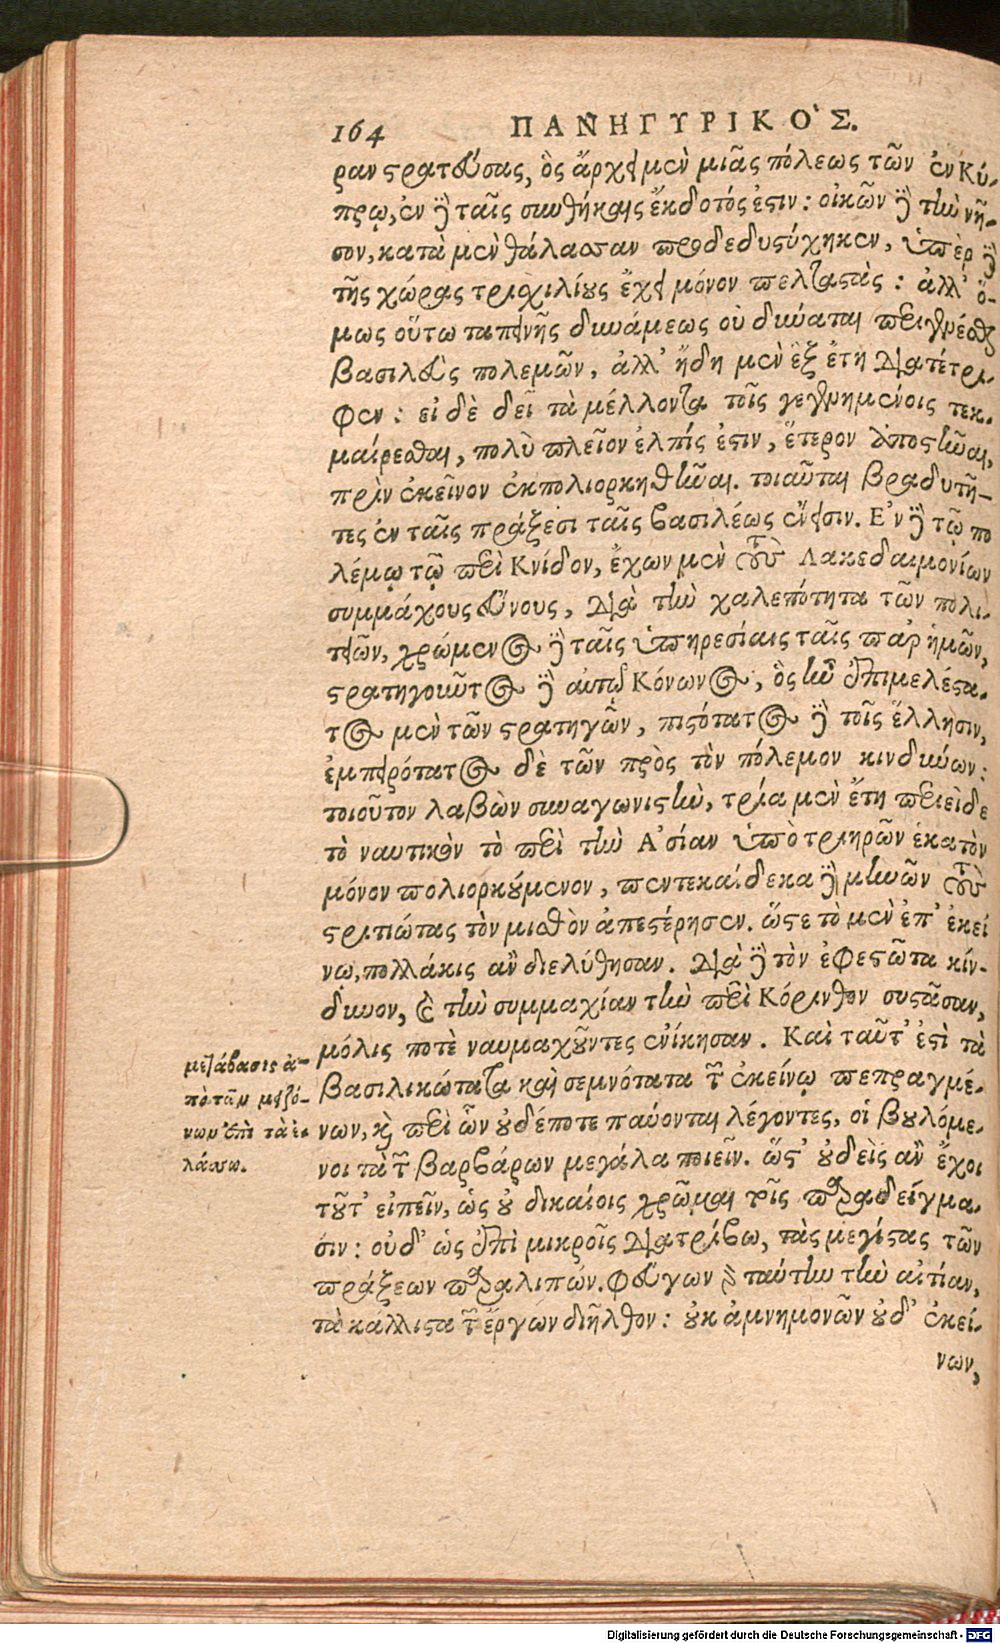 164 ΠΑΝΗΓΥΡΙΚΟ'Σ.
ραν στρατεύσας, ὃς ἄρχει μὲν μιᾶς πόλεως τῶν ἐν Κύ-
πρῳ, ἐν δὲ ταῖς συνθήκαις ἔκδοτός ἐστιν: οἰκῶν δὲ τὴν νῆ-
σον, κατὰ μὲν θάλασσαν προδεδυστύχηκεν, ὑπὲρ δὲ
τῆς χώρας τρισχιλίους ἔχει μόνον πελταστὰς: ἀλλ' ὅ-
μως οὕτω ταπεινῆς δυνάμεως οὐ δύναται περιγενέσθαι
βασιλεὺς πολεμῶν, ἀλλ' ἤδη μὲν ἓξ ἔτη διατέτρι-
φεν: εἰ δὲ δεῖ τὰ μέλλοντα τοῖς γεγενημένοις τεκ-
μαίρεσθαι, πολὺ πλεῖον ἐλπίς ἐστιν, ἕτερον ἀποστῆναι,
πρὶν ἐκεῖνον ἐκπολιορκηθῆναι. τοιαῦται βραδυτῆ-
τες ἐν ταῖς πράξεσι ταῖς βασιλέως ἔνεισιν. Ἐν δὲ τῷ πο
λέμῳ τῷ περὶ Κνίδον, ἔχων μὲν τοὺς Λακεδαιμονίων
συμμάχους εὔνους, διὰ τὴν χαλεπότητα τῶν πολι-
τειῶν, χρώμενος δὲ ταῖς ὑπηρεσίαις ταῖς παρ' ἡμῶν,
στρατηγοῦντος δὲ αὐτῷ Κόνωνος, ὃς ἦν ἐπιμελέστα-
τος μὲν τῶν στρατηγῶν, πιστότατος δὲ τοῖς ἕλλησιν,
ἐμπειρότατος δὲ τῶν πρὸς τὸν πόλεμον κινδύνων:
τοιοῦτον λαβὼν συναγωνιστὴν, τρία μὲν ἔτη περιεῖδε
τὸ ναυτικὸν τὸ περὶ τὴν Ἀσίαν ὑπὸ τριηρῶν ἑκατὸν
μόνον πολιορκούμενον, πεντεκαίδεκα δὲ μηνῶν τοὺς
στρατιώτας τὸν μισθὸν ἀπεστέρησεν. ὥστε τὸ μὲν ἐπ' ἐκεί
νῳ, πολλάκις ἂν διελύθησαν. διὰ δὲ τὸν ἐφεστῶτα κίν-
δυνον, καὶ τὴν συμμαχίαν τὴν περὶ Κόρινθον συστᾶσαν,
μόλις ποτὲ ναυμαχοῦντες ἐνίκησαν. Καὶ ταῦτ' ἐστὶ τὰ
βασιλικώτατα καὶ σεμνότατα τῶν ἐκείνῳ πεπραγμέ-
νων, καὶ περὶ ὧν οὐδέποτε παύονται λέγοντες, οἱ βουλόμε-
νοι τὰ τῶν βαρβάρων μεγάλα ποιεῖν. ὥστ' οὐδεὶς ἂν ἔχοι
τοῦτ' εἰπεῖν, ὡς οὐ δικαίοις χρῶμαι τοῖς παραδείγμα-
σιν: οὐδ' ὡς ἐπὶ μικροῖς διατρίβω, τὰς μεγίστας τῶν
πράξεων παραλιπών. φεύγων γὰρ ταύτην τὴν αἰτίαν,
τὰ κάλλιστα τῶν ἔργων διῆλθον: οὐκ ἀμνημονῶν οὐδ' ἐκεί-
νων,
μετάβασις ἀ-
πὸ τῶν μειζό-
νων ἐπὶ τὰ ἐ-
λάττω.
Digitalisierung gefördert durch die Deutsche Forschungsgemeinschaft - DFG